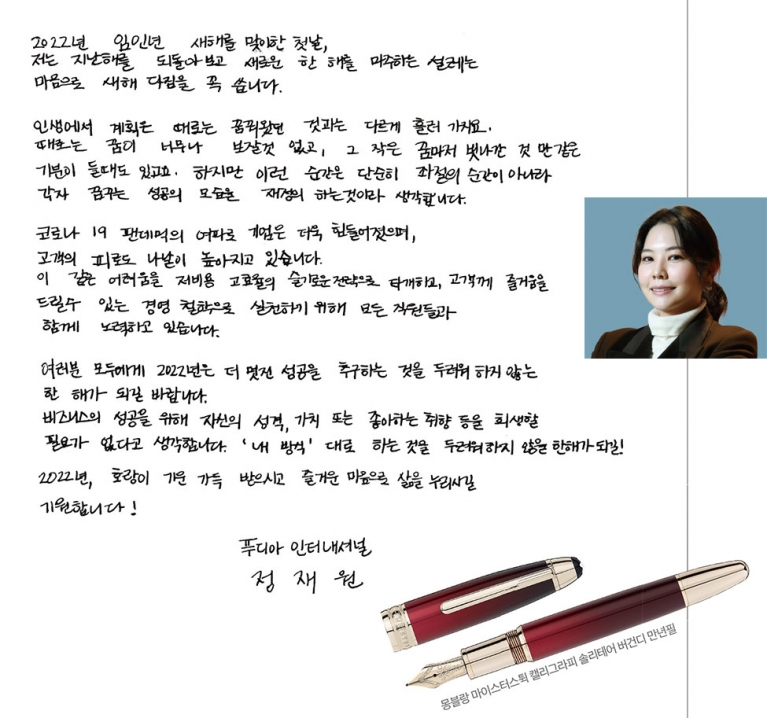 2022년 임인년 새해를 맞이한 첫날,
저는 지난해를 되돌아보고 새로운 한 해를 마주하는 설레는
마음으로 새해 다림을 꼭 씁니다.
인생에서 계획은 때로는 꿈꿔왔던 것과는 다르게 흘러 가지요.
때로는 꿈이 너무나 보잘것 없고, 그 작은 꿈마저 빗나간 것 만 같은
기분이 들때도 있고요. 하지만 이런 순간은 단순히 좌절의 순간이 아니라
각자 꿈꾸는 성공의 모습을 재정의 하는것이라 생각합니다.
코로나 19 팬데믹의 여파로 기업은 더욱 힘들어졌으며,
고객의 피로도 나날이 높아지고 있습니다.
이 같은 어려움을 저비용 고효율의 슬기로운 전략으로 타개하고, 고객께 즐거움을
드릴수 있는 경영 철학으로 실천하기 위해 모든 직원들과
함께 노력하고 있습니다.
여러분 모두에게 2022년은 더 멋진 성공을 추구하는 것을 두려워 하지 않는
한 해가 되길 바랍니다.
비즈니스의 성공을 위해 자신의 성격, 가치 또는 좋아하는 취향 등을 희생할
필요가 없다고 생각합니다. '내 방식' 대로 하는 것을 두려워하지 않을 한해가 되길!
2022년, 호랑이 기운 가득 받으시고 즐거운 마음으로 삶을 누리시길
기원합니다!
푸디아 인터내셔널
정 재 원
몽블랑 마이스터스튁 캘리그라피 솔리테어 버건디 만년필